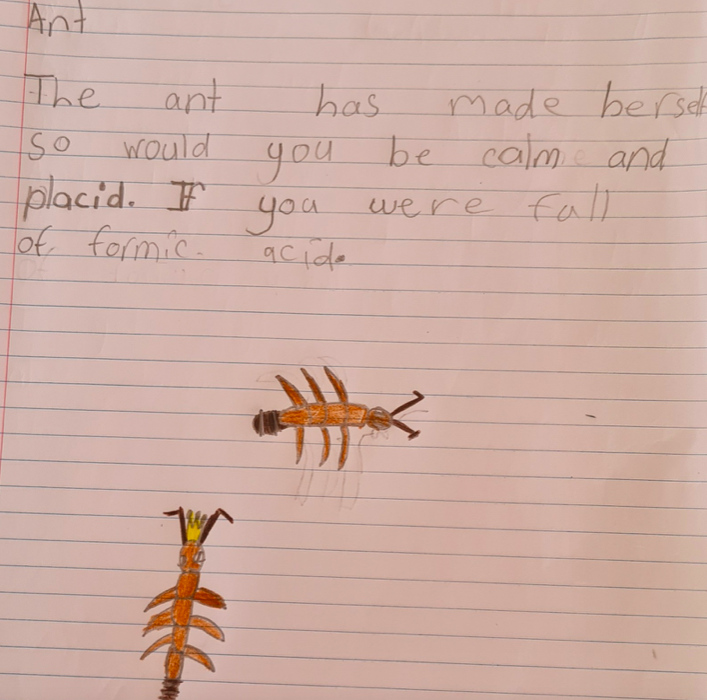 Ant
The ant has made herself
so would you be calm and
placid. If you were full
of formic. acid.